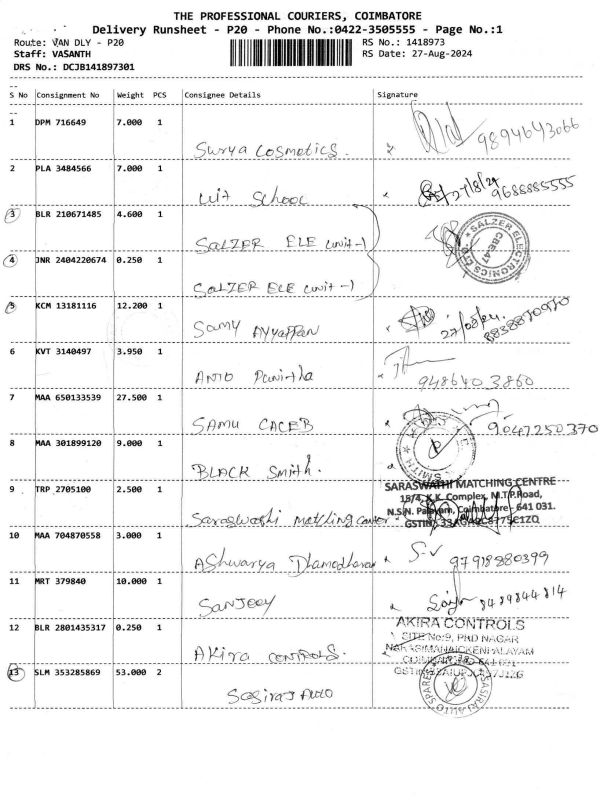 THE PROFESSIONAL COURIERS, COIMBATORE
Delivery Runsheet - P20 - Phone No.:0422-3505555 - Page No.:1
Route: VAN DLY - P20 RS No.: 1418973
Staff: VASANTH RS Date: 27-Aug-2024
DRS No.: DCJB141897301
S No Consignment No Weight PCS Consignee Details Signature
1 DPM 716649 7.000 1 Surya Cosmetics. 9894643066
2 PLA 3484566 7.000 1 Wit School 27/8/24 9688885555
3 BLR 210671485 4.600 1 SALZER ELE (unit-1)
SALZER ELECTRONICS LTD CBE47
4 JNR 2404220674 0.250 1 SALZER ELE (unit-1)
5 KCM 13181116 12.200 1 Samy Ayyappan 27/08/24.
6 KVT 3140497 3.950 1 ANTO Punitha 9486403860
7 MAA 650133539 27.500 1 SAMU CACEB 9047250370
8 MAA 301899120 9.000 1 BLACK Smith.
SMITH
9 TRP 2705100 2.500 1 Saraswathi matching center
SARASWATHI MATCHING CENTRE
15/4, K.K. Complex, M.T.P.Road,
N.S.N. Palayam, Coimbatore - 641 031.
GSTIN:
10 MAA 704870558 3.000 1 AShwarya Dhamodharan S.V 9791880399
11 MRT 379840 10.000 1 SANJEEY 8489844814
12 BLR 2801435317 0.250 1 AKira CONTROLS.
AKIRA CONTROLS
SITE No:9, PHD NAGAR
NARASIMANAICKENPALAYAM
13 SLM 353285869 53.000 2 Sasiraj Auto
SASIRAJ AUTO SPARES